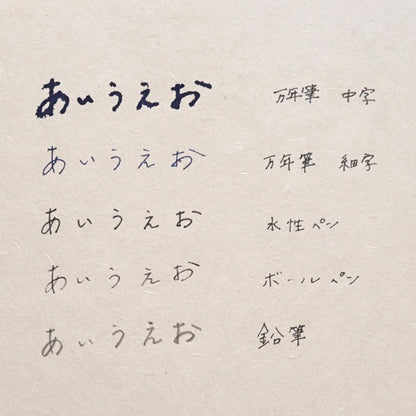 あいうえお 万年筆 中字
あいうえお 万年筆 細字
あいうえお 水性ペン
あいうえお ボールペン
あいうえお 鉛筆